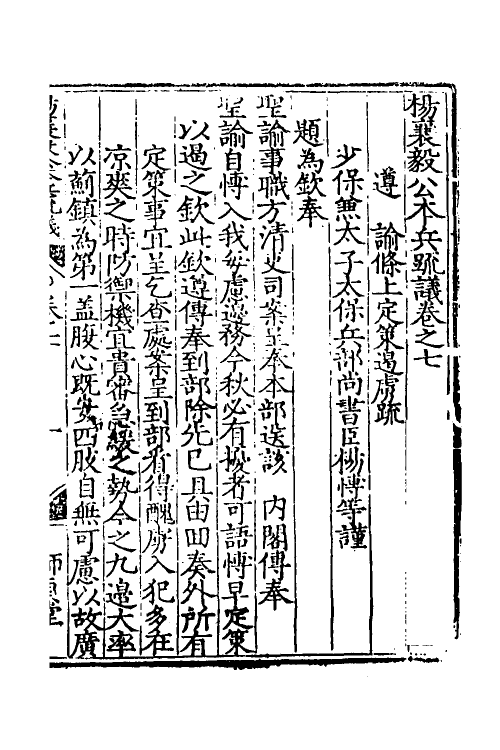 楊襄毅公本兵疏議卷之七
遵　諭條上定策遏虜疏
少保兼太子太保兵部尚書臣楊博等謹
題為欽奉
聖諭事職方清吏司案呈奉本部送該　內閣傳奉
聖諭自博入我每慮邊務今秋必有擾者可語博早定策
以遏之欽此欽遵傳奉到部除先已具由回奏外所有
定策事宜呈乞查處案呈到部看得醜虜入犯多在
凉爽之時防禦機宜貴審急緩之勢今之九邊大率
以薊鎮為第一盖腹心既安四肢自無可慮以故廣
一
師貞堂